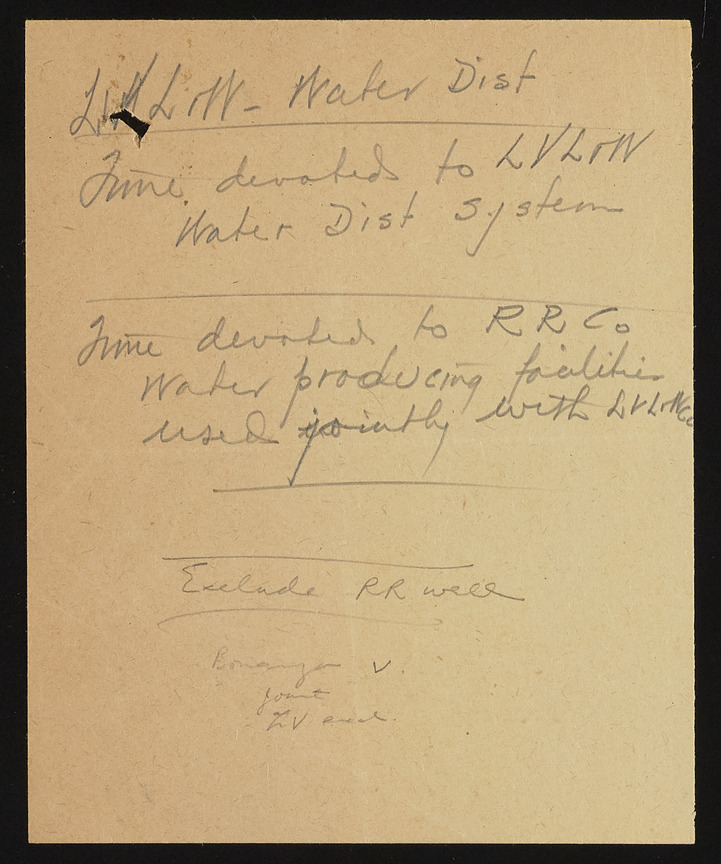 LVL&W - Water Dist
Time devoted to LVL&W
Water Dist System
Time devoted to RR Co
Water producing facilities
used jointly with LVL&WCo
Exclude RR well
Bonanza V.
Joint
LV